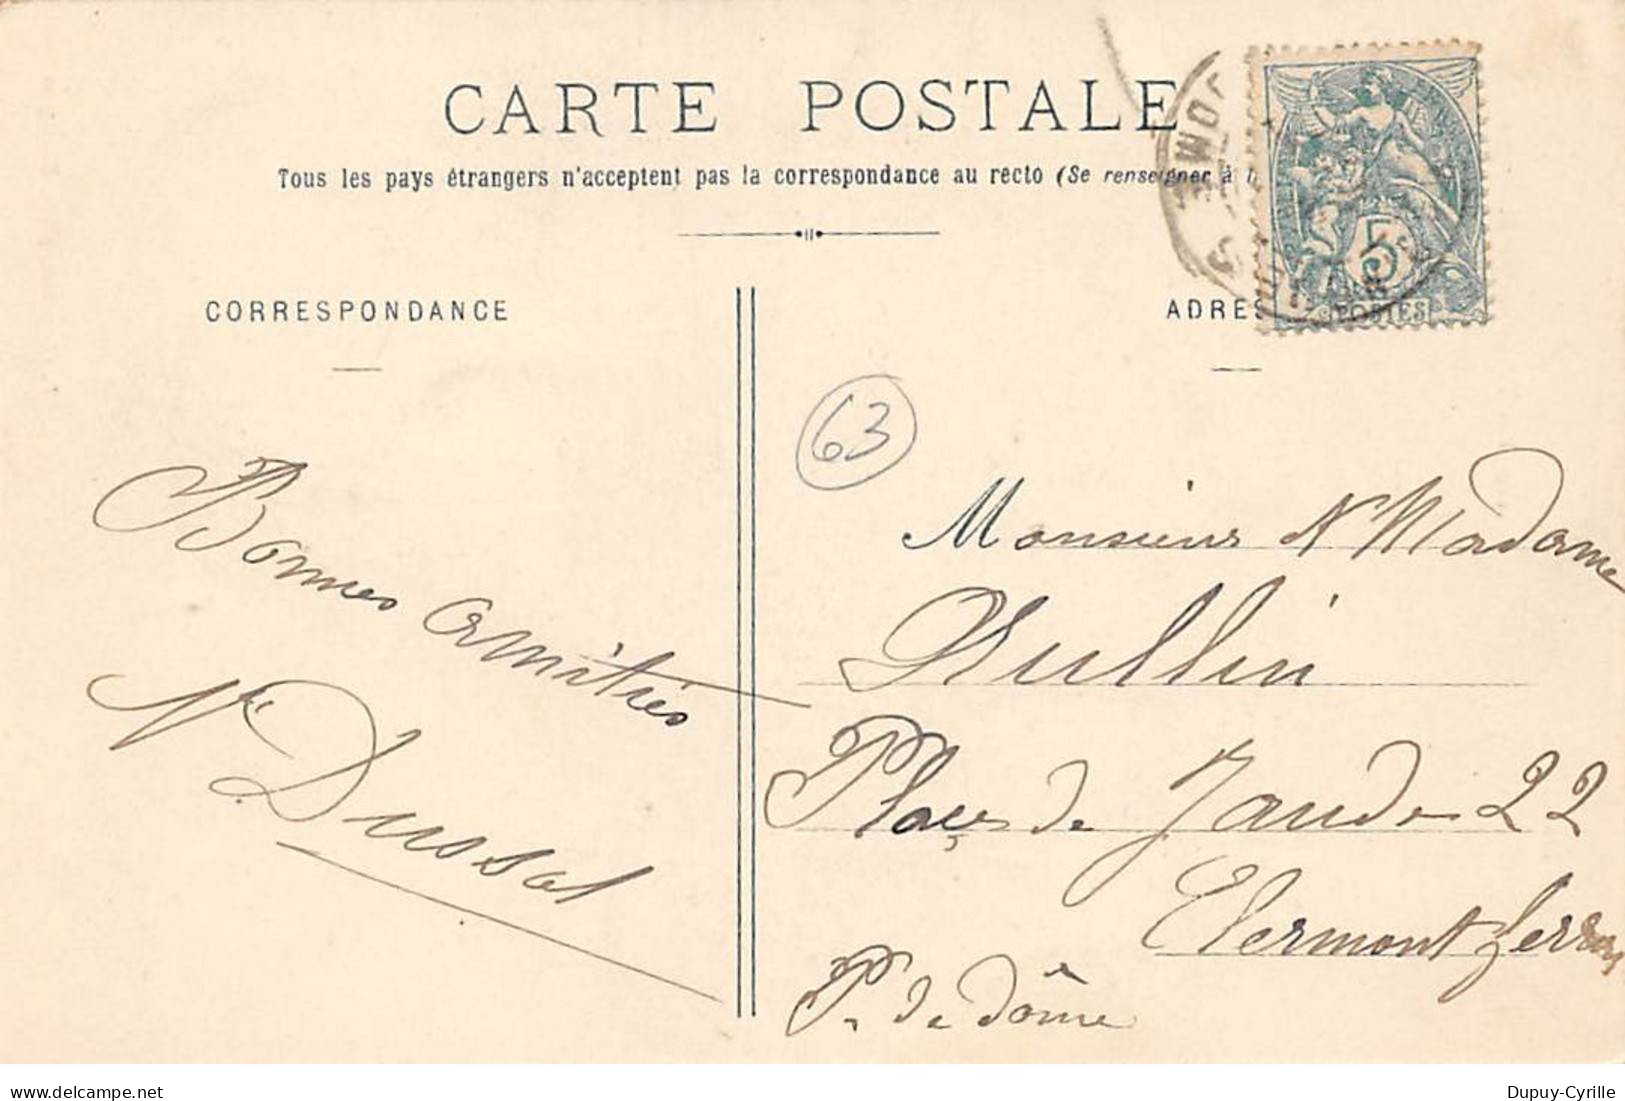 CARTE POSTALE
Tous les pays étrangers n'acceptent pas la correspondance au recto (Se renseigner à
CORRESPONDANCE
ADRES
5
POSTES
63
Bonnes amitiés
Dussol
Monsieur & Madame
Dullin
Place de Jaude 22
Clermont ferran
P. de Dôme
delcampe.net
Dupuy-Cyrille